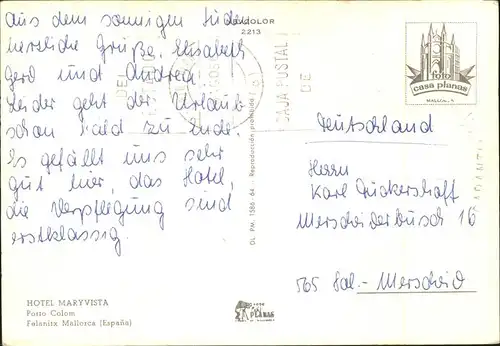 Aus dem sonnigen Süden
herzliche Grüße. Elisabeth
Gerd und Andrea.
Leider geht der Urlaub
schon bald zu Ende.
Es gefällt uns sehr
gut hier, das Hotel,
die Verpflegung sind
erstklassig.
HOTEL MARYVISTA
Porto Colom
Felanitx Mallorca (España)
COLOR
2.213
CAJA POSTAL
DE
DL PM. 1586-64 - Reproducción prohibida
PLANAS
foto
casa planas
MALLORCA
Deutschland
Herrn
Karl Dückershoff
Merscheiderbusch 16
565 Sol.- Merscheid